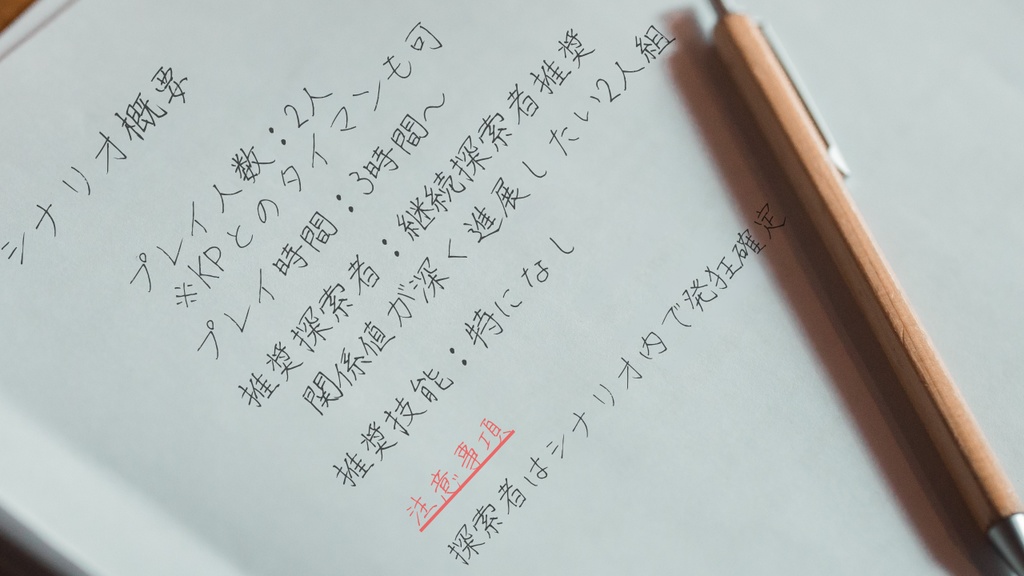 シナリオ概要
プレイ人数：2人
※KPとのタイマンも可
プレイ時間：3時間～
推奨探索者：継続探索者推奨
関係値が深く進展したい2人組
推奨技能：特になし
注意事項
探索者はシナリオ内で発狂確定